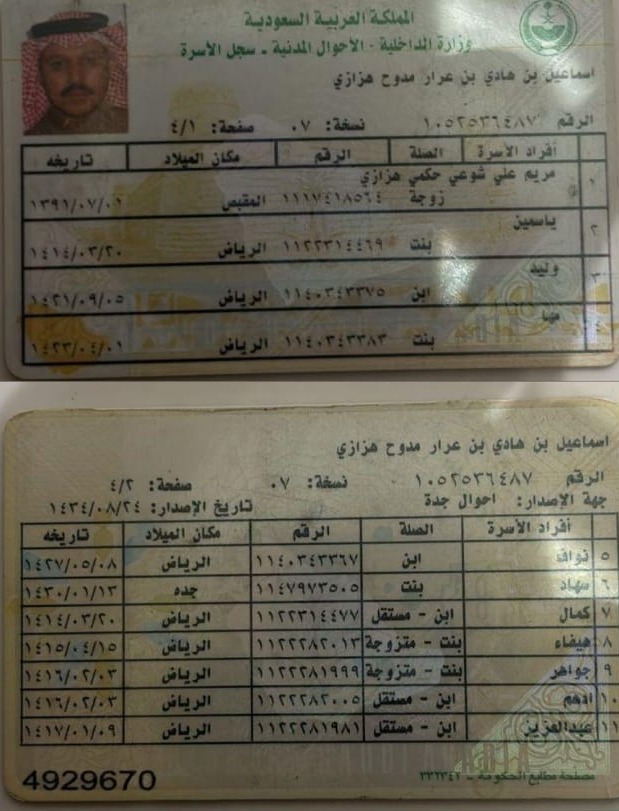 المملكة العربية السعودية
وزارة الداخلية - الأحوال المدنية - سجل الأسرة
اسماعيل بن هادي بن عرار مدوح هزازي
الرقم ١٠٥٢٥٣٦٤٨٧ نسخة: ٠٧ صفحة: ٤/١
أفراد الأسرة الصلة الرقم مكان الميلاد تاريخه
١ مريم علي شوعي حكمي هزازي
زوجة ١١١٧٤١٨٥٦٤ المقبص ١٣٩١/٠٧/٠١
٢ ياسمين
بنت ١١٢٢٣١٤٤٦٩ الرياض ١٤١٤/٠٣/٢٠
٣ وليد
ابن ١١٤٠٣٤٣٣٧٥ الرياض ١٤٢١/٠٩/٠٥
٤ مها
بنت ١١٤٠٣٤٣٣٨٣ الرياض ١٤٢٣/٠٤/٠١
اسماعيل بن هادي بن عرار مدوح هزازي
الرقم ١٠٥٢٥٣٦٤٨٧ نسخة: ٠٧ صفحة: ٤/٢
جهة الإصدار: احوال جدة تاريخ الإصدار: ١٤٣٤/٠٨/٢٤
أفراد الأسرة الصلة الرقم مكان الميلاد تاريخه
٥ نواف ابن ١١٤٠٣٤٣٣٦٧ الرياض ١٤٢٧/٠٥/٠٨
٦ سهاد بنت ١١٤٧٩٧٣٥٠٥ جده ١٤٣٠/٠١/١٣
٧ كمال ابن - مستقل ١١٢٢٣١٤٤٧٧ الرياض ١٤١٤/٠٣/٢٠
٨ هيفاء بنت - متزوجة ١١٢٢٢٨٢٠١٣ الرياض ١٤١٥/٠٤/١٥
٩ جواهر بنت - متزوجة ١١٢٢٢٨١٩٩٩ الرياض ١٤١٦/٠٢/٠٣
١٠ ادهم ابن - مستقل ١١٢٢٢٨٢٠٠٥ الرياض ١٤١٦/٠٢/٠٣
١١ عبدالعزيز ابن - مستقل ١١٢٢٢٨١٩٨١ الرياض ١٤١٧/٠١/٠٩
4929670 مصلحة مطابع الحكومة - ٣٢٣٤٢